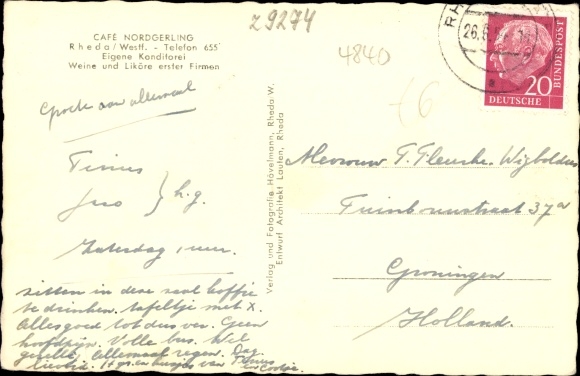 z 9274
CAFÉ NORDGERLING
Rheda/Westf. - Telefon 655
Eigene Konditorei
Weine und Liköre erster Firmen
4840
RH
26.6
DEUTSCHE
BUNDESPOST
20
aan allemaal
Tinus
h.g.
Zaterdag 1 uur.
zitten in deze zaal koffie
te drinken. tafeltje met X.
Alles goed tot dus ver. Geen
hoofdpijn. Volle bus. Wel
gezellig. Allemaal regen. Dag
van Tinus
en Cootje.
Verlag und Fotografie Hövelmann, Rheda W.
Entwurf Architekt Lauten, Rheda
Mevrouw
37a
Groningen
Holland.